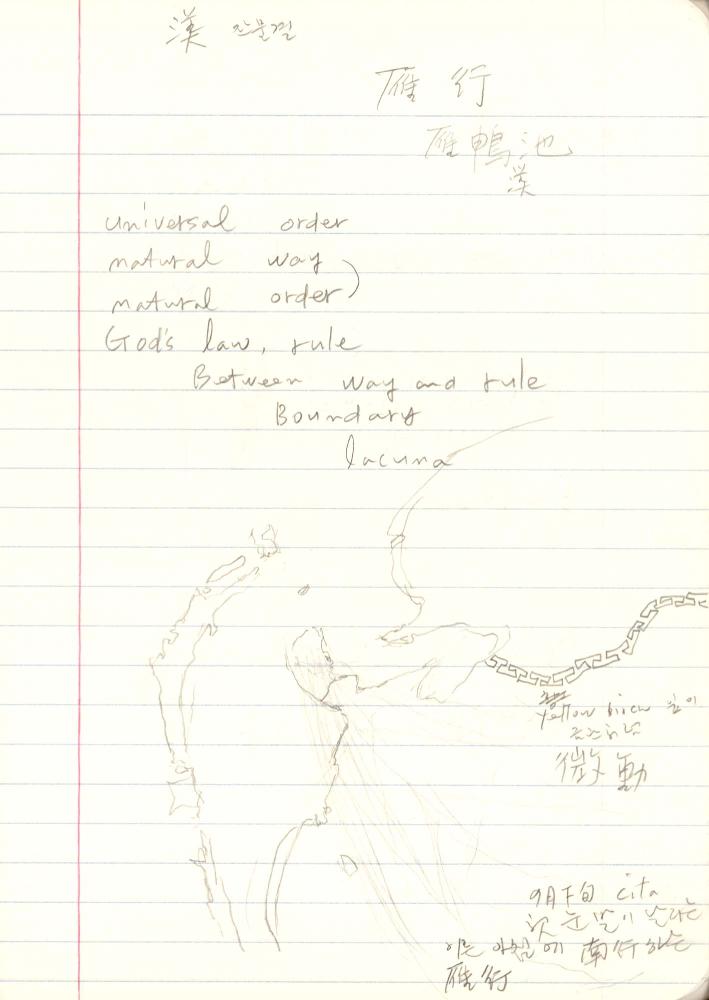 漢 잔물결
雁行
雁鴨池
漢
universal order
natural way
natural order
God's law, rule
Between way and rule
Boundary
lacuna
yellow birch 잎이
微動
9月下旬 cita
첫 눈발이 날리는
이른 아침에 南行하는
雁行